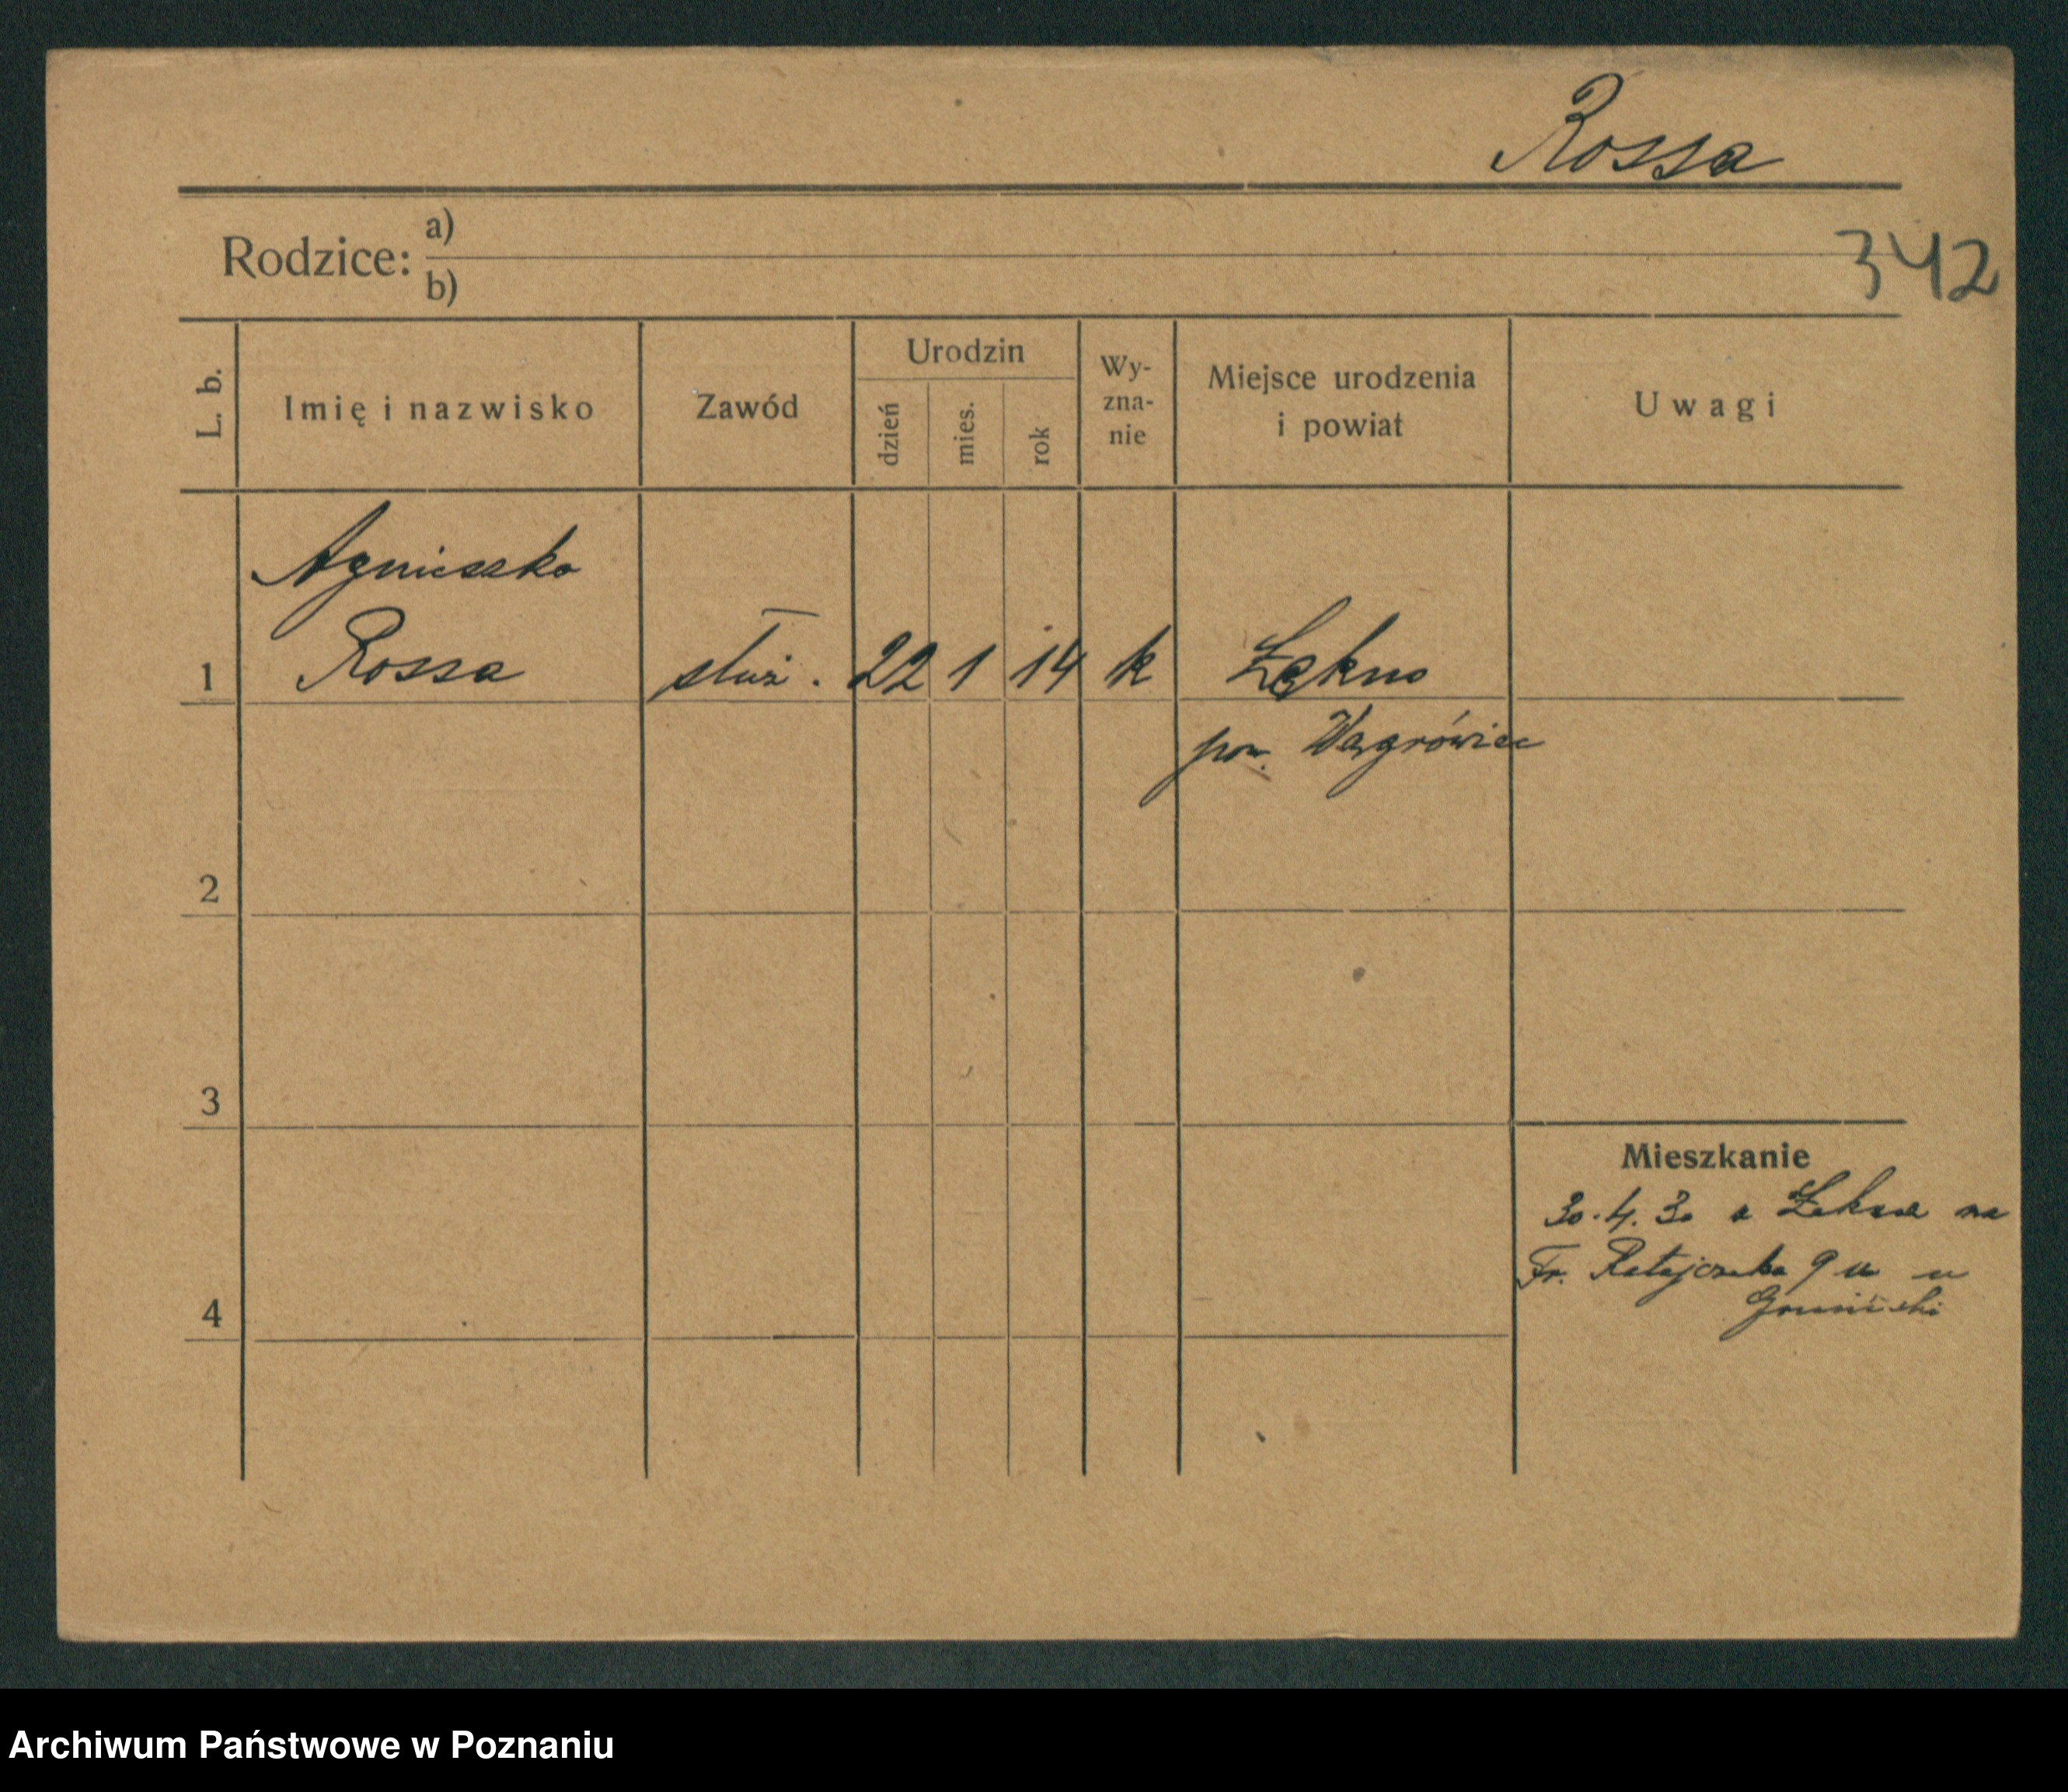 Rossa
Rodzice: a)
b)
342
L. b.
Imię i nazwisko
Zawód
Urodzin
dzień
mies.
rok
Wy-
zna-
nie
Miejsce urodzenia
i powiat
Uwagi
Agnieszka
1 Rossa służ. 22 1 14 k Łękno
pow. Wągrówiec
2
3
Mieszkanie
30.4.30 z Łekna na
Fr. Ratajczaka 9 u
4
Archiwum Państwowe w Poznaniu